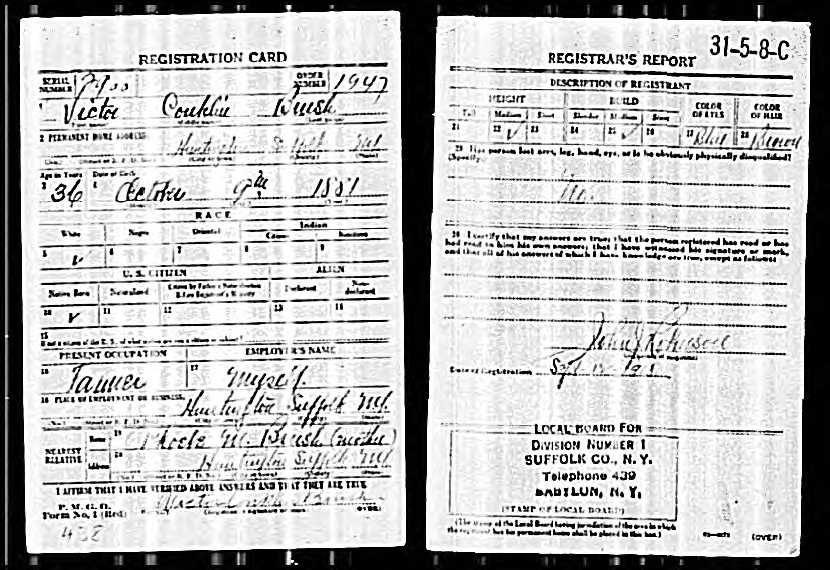 REGISTRATION CARD
SERIAL NUMBER
ORDER NUMBER 1947
1 Victor Conklin Brush
2 PERMANENT HOME ADDRESS
Huntington Suffolk N.Y.
Age in Years Date of Birth
3 36 4 October 9th 1881
RACE
White Negro Oriental Indian
Citizen Noncitizen
5 ✓ 6 7 8 9
U. S. CITIZEN ALIEN
Native Born Naturalized Citizen by Father's Naturalization Before Registrant's Majority Declarant Non-declarant
10 ✓ 11 12 13 14
15
If not a citizen of the U.S., of what nation are you a citizen or subject?
PRESENT OCCUPATION EMPLOYER'S NAME
16 Farmer 17 Myself
18 PLACE OF EMPLOYMENT OR BUSINESS
Huntington Suffolk N.Y.
NEAREST RELATIVE
Name 19 M. Brush (mother)
Address 20 Huntington Suffolk N.Y.
I AFFIRM THAT I HAVE VERIFIED ABOVE ANSWERS AND THAT THEY ARE TRUE
P. M. G. O.
Form No. 1 (Red)
Victor Conklin Brush
(OVER)
432
31-5-8-C
REGISTRAR'S REPORT
DESCRIPTION OF REGISTRANT
HEIGHT BUILD COLOR OF EYES COLOR OF HAIR
Tall Medium Short Slender Medium Stout
21 22 ✓ 23 24 25 ✓ 26 27 Blue 28 Brown
29 Has person lost arm, leg, hand, eye, or is he obviously physically disqualified?
(Specify)
No
30 I certify that my answers are true; that the person registered has read or has
had read to him his own answers; that I have witnessed his signature or mark,
and that all of his answers of which I have knowledge are true, except as follows:
Date of Registration Sept 12 1918
LOCAL BOARD FOR
DIVISION NUMBER 1
SUFFOLK CO., N. Y.
Telephone 439
BABYLON, N. Y.
(STAMP OF LOCAL BOARD)
(The stamp of the Local Board having jurisdiction of the area in which
the registrant has his permanent home shall be placed in this box.)
(OVER)